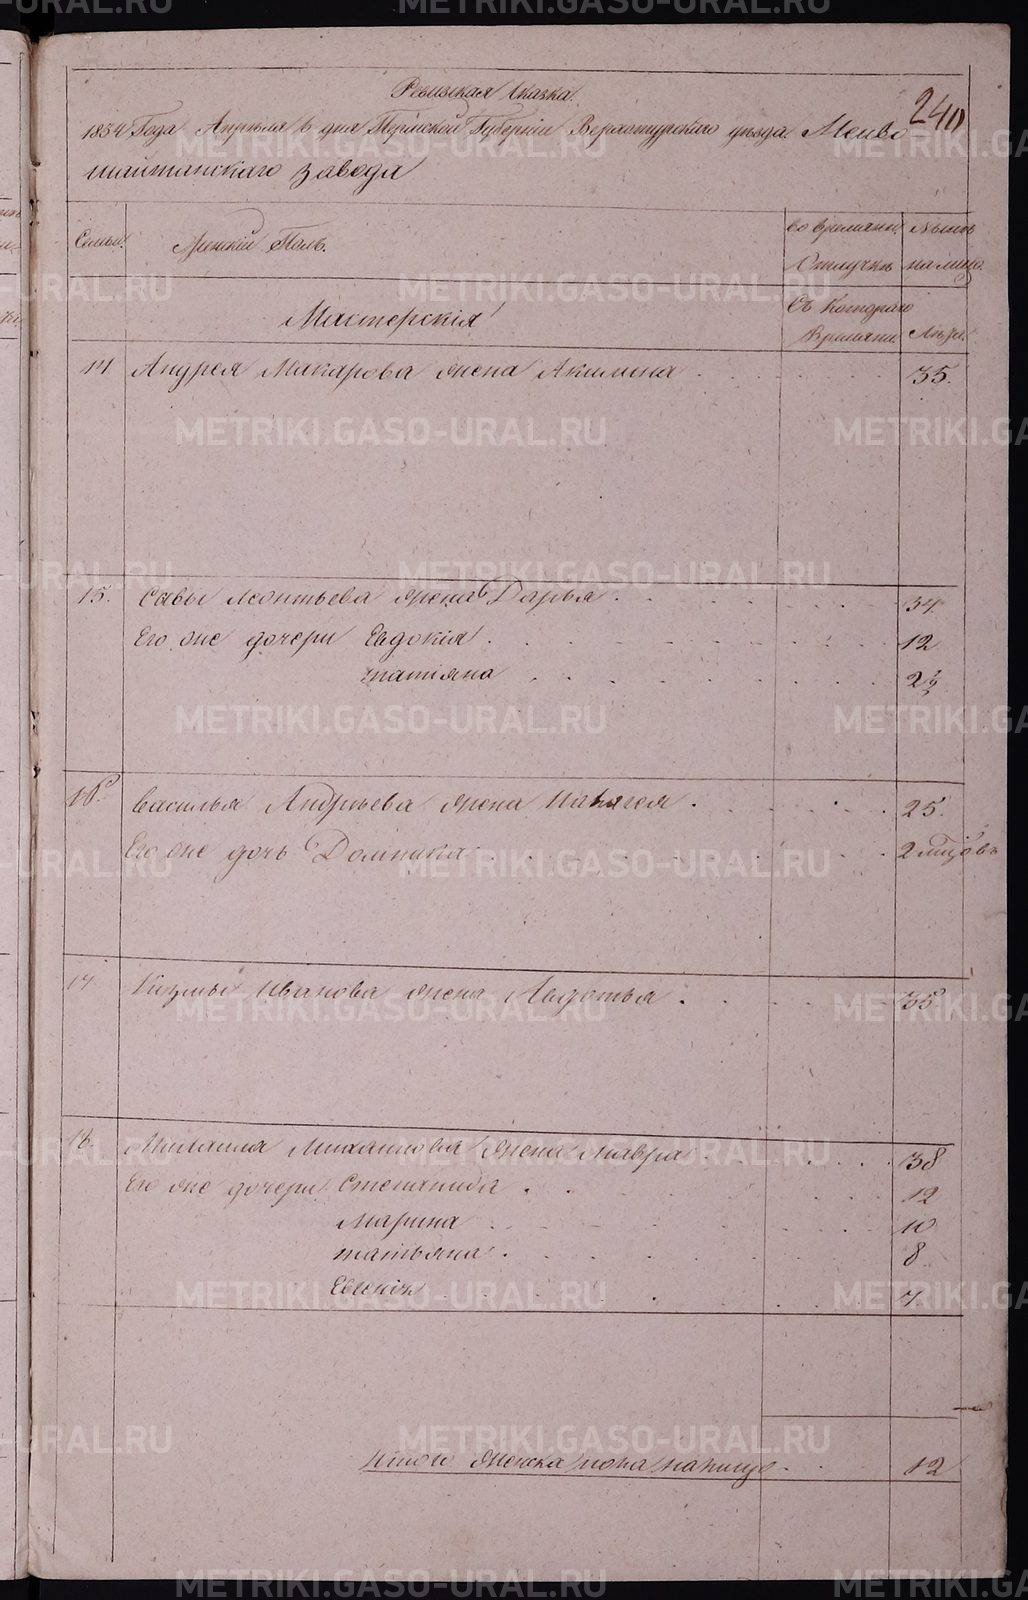 Ревизская Сказка.
240
1834 Года Апреля 6 дня Пермской Губернии Верхотурского уезда Меиво
шайтанскаго завода
Семьи. Женскій Полъ. во времянн. Нынѣ
Отлучкѣ на лицо.
Мастерскія Съ котораго
Времяни Лѣта.
14 Андрея Макарова жена Акилина 35.
15. Савы Леонтьева жена Дарья 34.
Его же дочери Евдокія 12
татіяна 2½
16. Василья Андрѣева жена Палагея 25.
Его же дочь Домника 2 мцовъ
17. Кузмы Иванова жена Авдотья 35.
18. Михаила Михаилова жена Мавра 38
Его же дочери Степанида 12
Марина 10
татьяна 8
7.
Итого женска пола налицо 12
METRIKI.GASO-URAL.RU